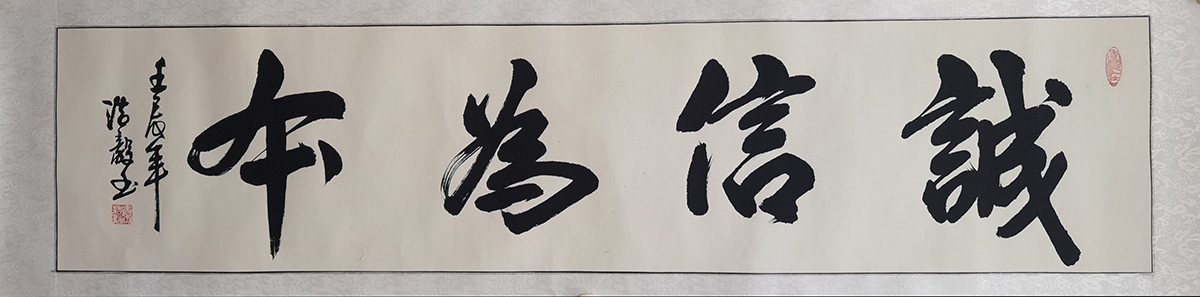 誠信為本
壬辰年
浩毅书